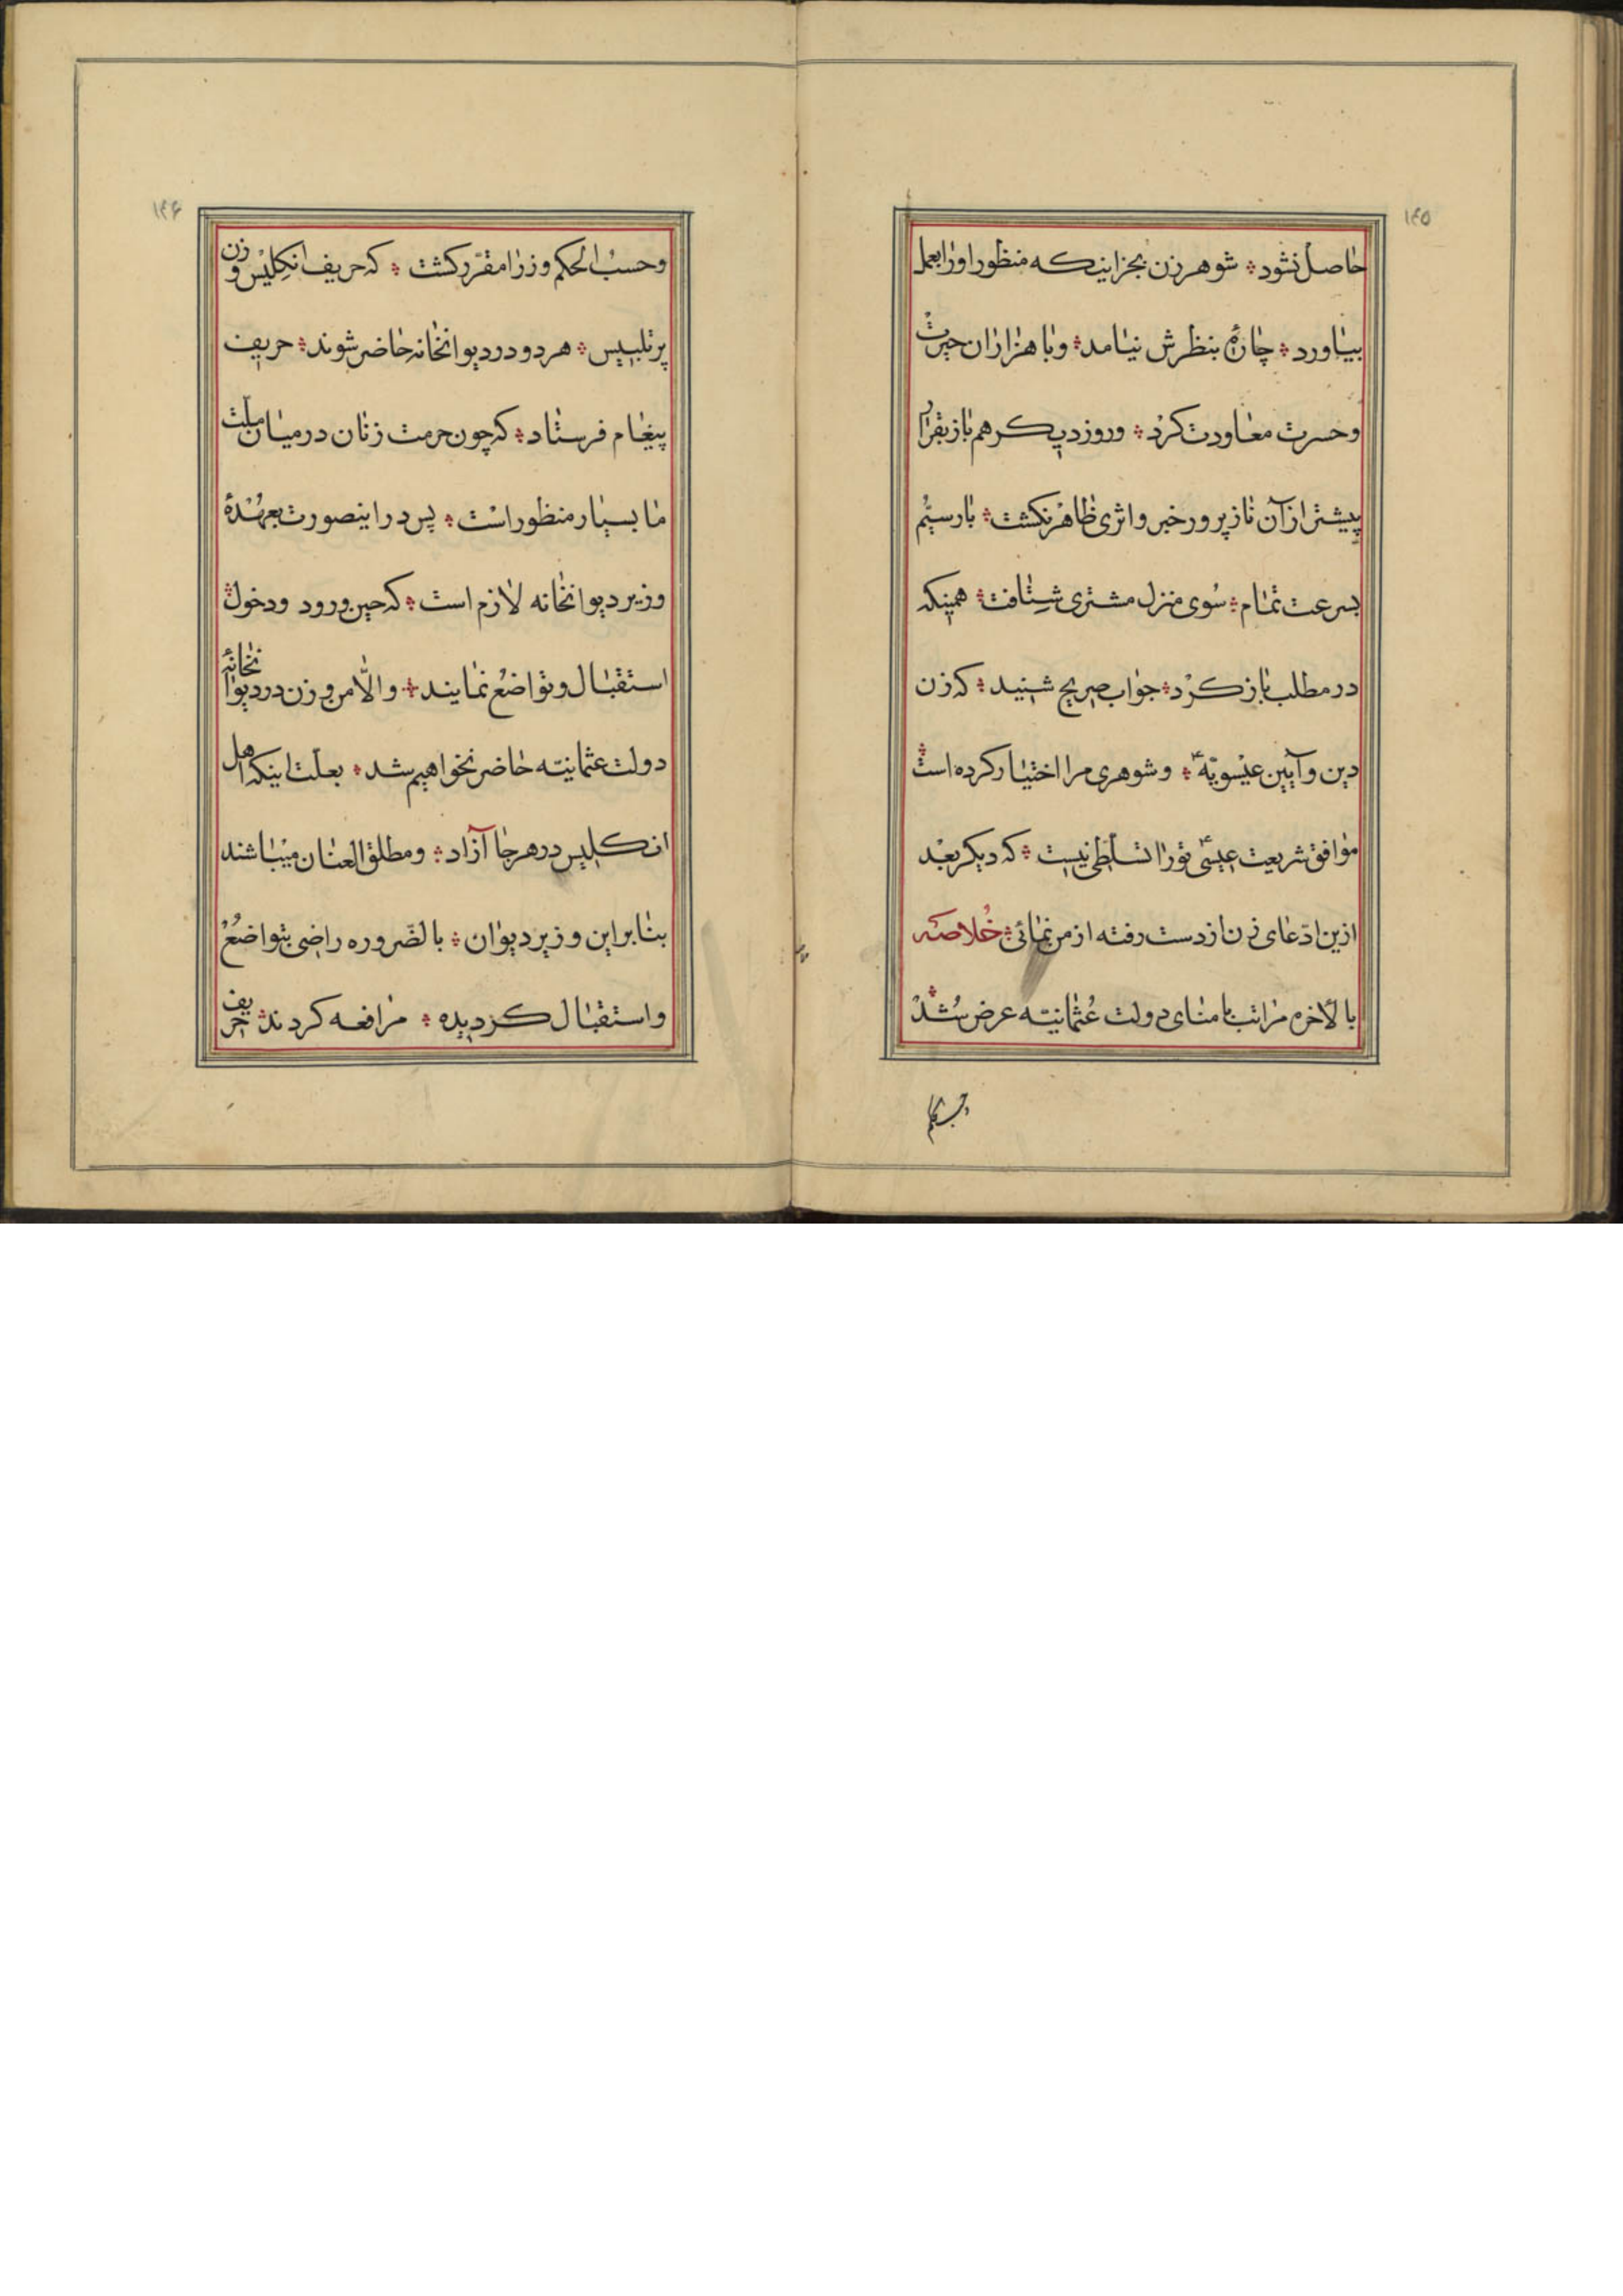 ۱۴۵
حاصل نشود ؞ شوهر زن بجز اینکه منظور او را بعمل
بیاورد ؞ چارهٔ بنظرش نیامد ؞ و با هزاران حیرت
و حسرت معاودت کرد ؞ و روز دیکر هم باز بقرار
پیشتر از آن ناز پرور خبر و اثری ظاهر نکشت ؞ بار سیّم
بسرعت تمام ؞ سوی منزل مشتری شتافت ؞ همینکه
در مطلب باز کرد ؞ جواب صریح شنید ؞ که زن
دین و آیین عیسویّه ؞ و شوهری مرا اختیار کرده است ؞
موافق شریعت عیسیٰ تو را تسلّطی نیست ؞ که دیکر بعد
ازین ادّعای زن از دست رفته از من نمائی ؞ خلاصه
بالأخره مراتب بامنای دولت عثمانیّه عرض شد ؞
وحسب الحکم
۱۴۶
و حسب الحکم وزرا مقرّر کشت ؞ که حریف انکلیس و زن
پر تلبیس ؞ هر دو در دیوانخانه حاضر شوند ؞ حریف
پیغام فرستاد ؞ که چون حرمت زنان در میان ملّت
ما بسیار منظور است ؞ پس در اینصورت بعهدهٔ
وزیر دیوانخانه لازم است ؞ که حین ورود و دخول ؞
استقبال و تواضع نمایند ؞ و الّا من و زن در دیوانخانهٔ
دولت عثمانیّه حاضر نخواهیم شد ؞ بعلّت اینکه اهل
انکلیس در هر جا آزاد ؞ و مطلق العنان میباشند
بنا بر این وزیر دیوان ؞ بالضّروره راضی بتواضع
و استقبال کردیده ؞ مرافعه کردند ؞ حریف